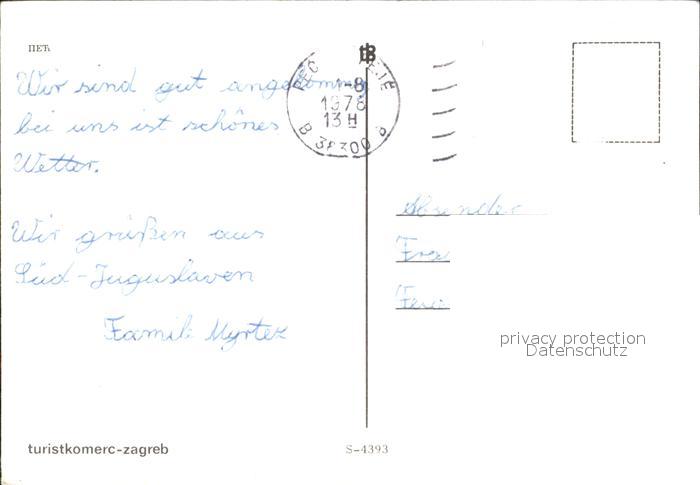 ПЕЋ
Wir sind gut angekommen
bei uns ist schönes
Wetter.
Wir grüßen aus
Süd-Juguslaven
Famili Myrtez
1-8
1978
13 H
B 38300 B
Absender
Fra
privacy protection
Datenschutz
turistkomerc-zagreb
S-4393